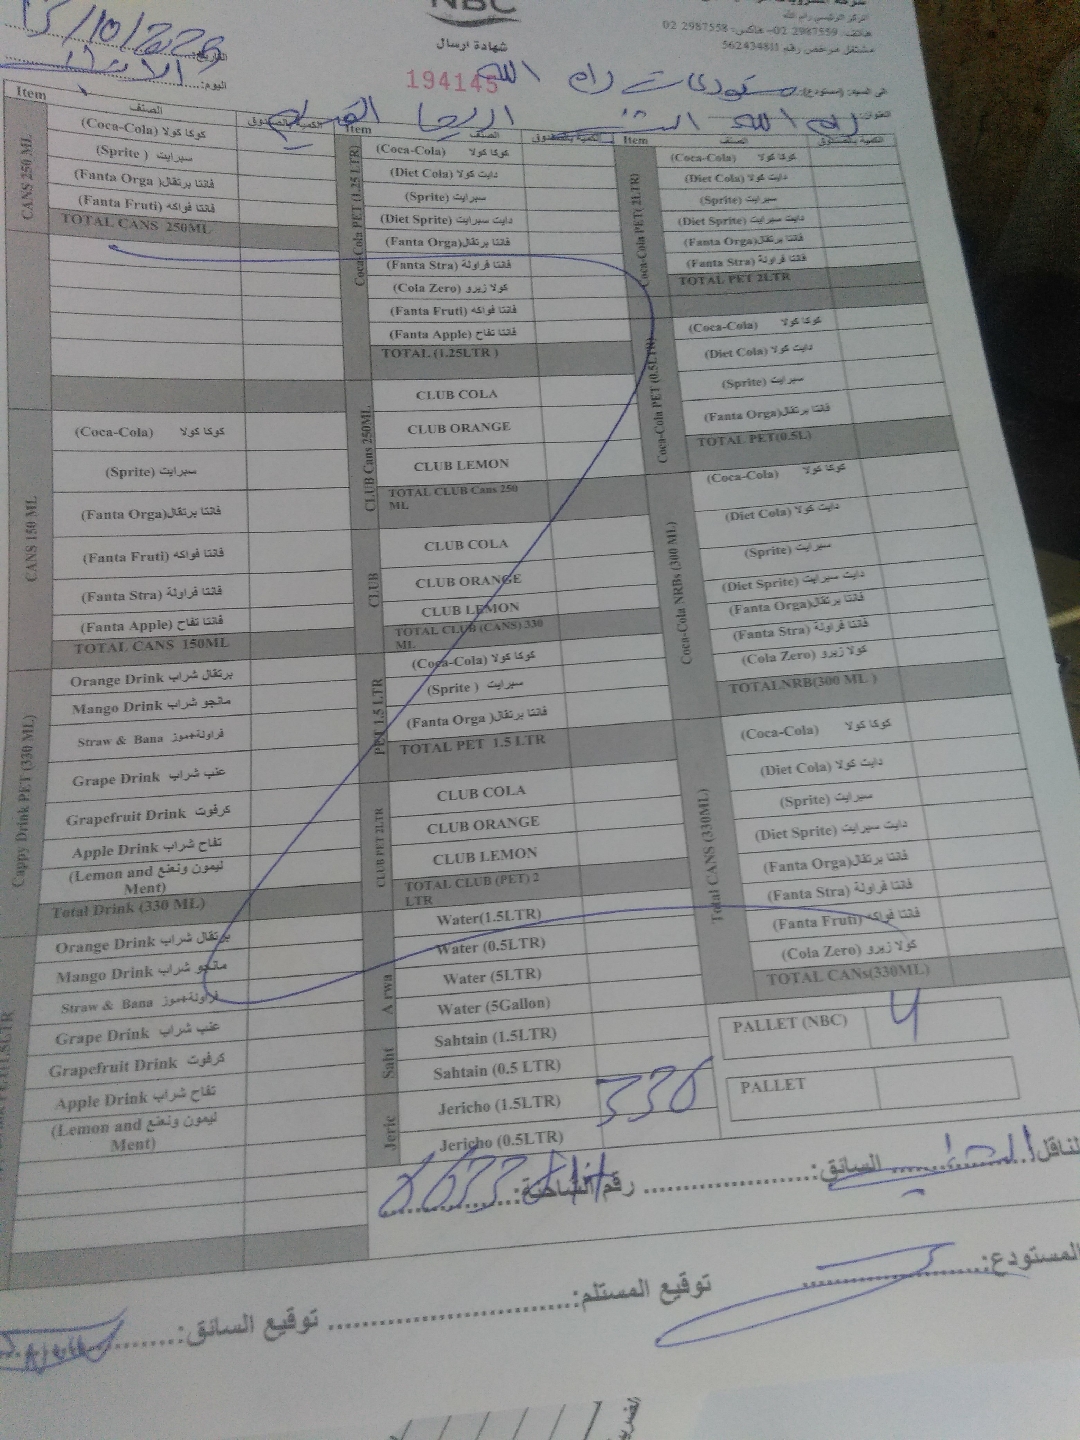 NBC
المركز الرئيسي رام الله
هاتف: 2987559 02- فاكس: 2987558 02
مشتغل مرخص رقم 562434811
شهادة ارسال
194145
التاريخ:
اليوم:
الى السيد: (مستودع): مستودعات رام الله
العنوان: رام الله
Item الصنف الكمية بالصندوق
CANS 250 ML
(Coca-Cola) كوكا كولا
(Sprite ) سبرايت
(Fanta Orga )فانتا برتقال
(Fanta Fruti) فانتا فواكه
TOTAL CANS 250ML
CANS 150 ML
(Coca-Cola) كوكا كولا
(Sprite) سبرايت
(Fanta Orga)فانتا برتقال
(Fanta Fruti) فانتا فواكه
(Fanta Stra) فانتا فراولة
(Fanta Apple) فانتا تفاح
TOTAL CANS 150ML
Cappy Drink PET (330 ML)
Orange Drink برتقال شراب
Mango Drink مانجو شراب
Straw & Bana فراولة+موز
Grape Drink عنب شراب
Grapefruit Drink كرفوت
Apple Drink تفاح شراب
(Lemon and ليمون ونعنع
Ment)
Total Drink (330 ML)
Orange Drink برتقال شراب
Mango Drink مانجو شراب
Straw & Bana فراولة+موز
Grape Drink عنب شراب
Grapefruit Drink كرفوت
Apple Drink تفاح شراب
(Lemon and ليمون ونعنع
Ment)
Item الصنف الكمية بالصندوق
Coca-Cola PET (1.25 LTR)
(Coca-Cola) كوكا كولا
(Diet Cola) دايت كولا
(Sprite) سبرايت
(Diet Sprite) دايت سبرايت
(Fanta Orga)فانتا برتقال
(Fanta Stra) فانتا فراولة
(Cola Zero) كولا زيرو
(Fanta Fruti) فانتا فواكه
(Fanta Apple) فانتا تفاح
TOTAL (1.25LTR )
CLUB Cans 250ML
CLUB COLA
CLUB ORANGE
CLUB LEMON
TOTAL CLUB Cans 250
ML
CLUB
CLUB COLA
CLUB ORANGE
CLUB LEMON
TOTAL CLUB (CANS) 330
ML
PET 1.5 LTR
(Coca-Cola) كوكا كولا
(Sprite ) سبرايت
(Fanta Orga )فانتا برتقال
TOTAL PET 1.5 LTR
CLUB PET 2LTR
CLUB COLA
CLUB ORANGE
CLUB LEMON
TOTAL CLUB (PET) 2
LTR
Arwa
Water(1.5LTR)
Water (0.5LTR)
Water (5LTR)
Water (5Gallon)
Saht
Sahtain (1.5LTR)
Sahtain (0.5 LTR)
Jeric
Jericho (1.5LTR) 336
Jericho (0.5LTR)
Item الصنف الكمية بالصندوق
Coca-Cola PET( 2LTR)
(Coca-Cola) كوكا كولا
(Diet Cola) دايت كولا
(Sprite) سبرايت
(Diet Sprite) دايت سبرايت
(Fanta Orga)فانتا برتقال
(Fanta Stra) فانتا فراولة
TOTAL PET 2LTR
Coca-Cola PET (0.5LTR)
(Coca-Cola) كوكا كولا
(Diet Cola) دايت كولا
(Sprite) سبرايت
(Fanta Orga)فانتا برتقال
TOTAL PET(0.5L)
Coca-Cola NRBs (300 ML)
(Coca-Cola) كوكا كولا
(Diet Cola) دايت كولا
(Sprite) سبرايت
(Diet Sprite) دايت سبرايت
(Fanta Orga)فانتا برتقال
(Fanta Stra) فانتا فراولة
(Cola Zero) كولا زيرو
TOTALNRB(300 ML )
Total CANS (330ML)
(Coca-Cola) كوكا كولا
(Diet Cola) دايت كولا
(Sprite) سبرايت
(Diet Sprite) دايت سبرايت
(Fanta Orga)فانتا برتقال
(Fanta Stra) فانتا فراولة
(Fanta Fruti) فانتا فواكه
(Cola Zero) كولا زيرو
TOTAL CANs(330ML)
PALLET (NBC) 4
PALLET
الناقل: السائق: رقم الشاحنة:
المستودع: توقيع المستلم: توقيع السائق: